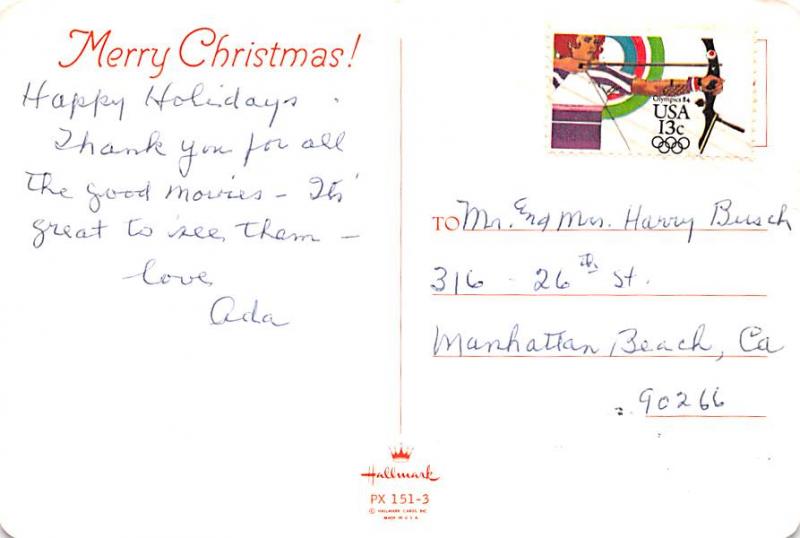 Merry Christmas!
Happy Holidays.
Thank you for all
the good movies – Its'
great to see them –
love
Ada
Olympics 84
USA
13c
TO Mr. and Mrs. Harry Busch
316 - 26th St.
Manhattan Beach, Ca
90266
Hallmark
PX 151-3
© HALLMARK CARDS, INC.
MADE IN U.S.A.